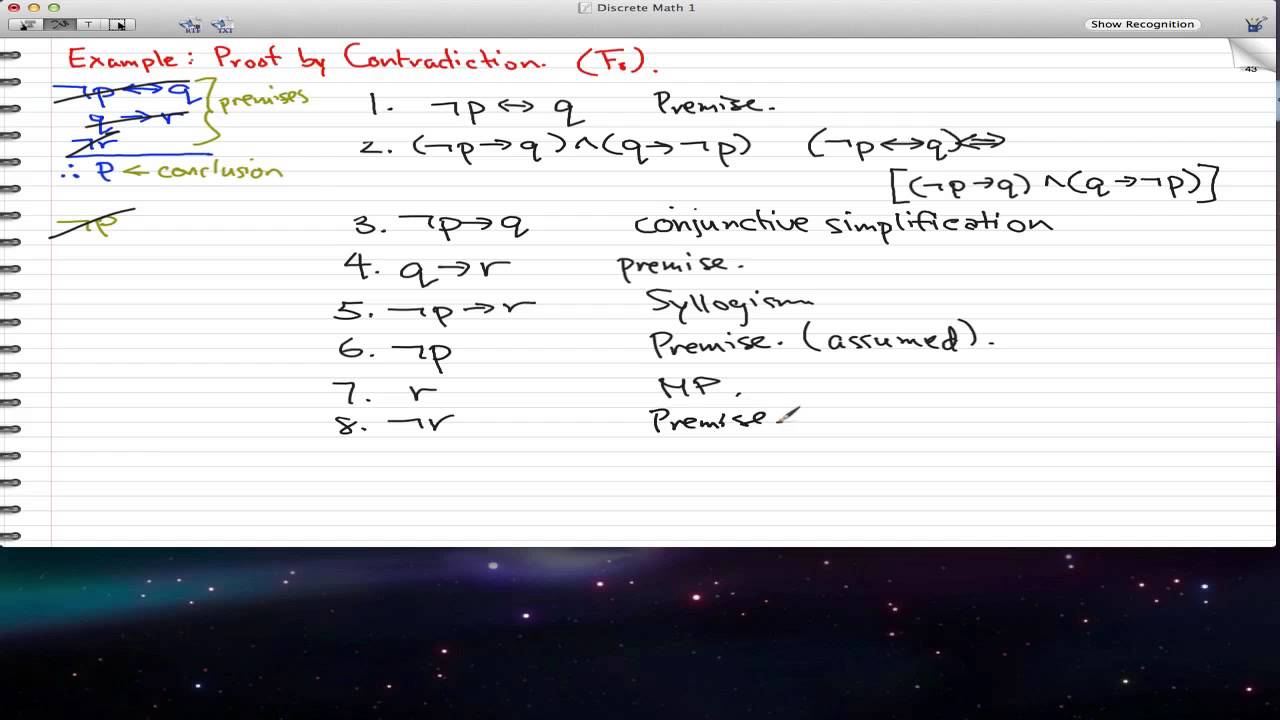 Discrete Math 1
T
RTF TXT
Show Recognition
Example: Proof by Contradiction. (F₀).
43
¬p ↔ q
q → r
¬r
premises
∴ p ← conclusion
¬p
1. ¬p ↔ q Premise.
2. (¬p → q) ∧ (q → ¬p) (¬p ↔ q) ⇔
[(¬p → q) ∧ (q → ¬p)]
3. ¬p → q conjunctive simplification
4. q → r premise.
5. ¬p → r Syllogism
6. ¬p Premise. (assumed).
7. r MP.
8. ¬r Premise